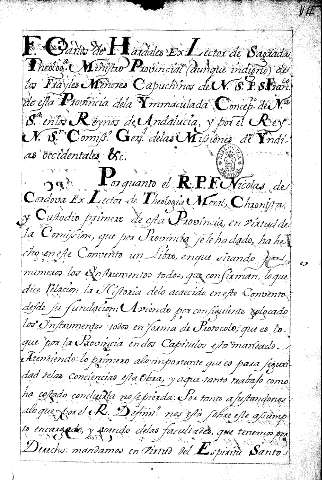 Fr. Carlos de Hardales Ex Lector de Sagrada
Theolog.ª Ministro Provincial (aunque indigno) de
los Frayles Menores Capuchinos de N. S. P. S. Fran.co
de esta Provincia de la Ynmaculada Concep.on de N.ra
S.ra en los Reynos de Andalucia, y por el Rey
N. S.or Comiss.º Gen.l de las Missiones de Yndi-
as occidentales &c.
Por quanto el R. P. F. Nicolas de
Cordova Ex Lector de Theologia Moral, Chronista,
y Custodio primero de esta Provincia, en virtud de
la Comission, que por Provincia se le ha dado, ha he-
cho en este Convento un Libro, en que situando
los Ynstrumentos todos, que confirman, lo que
dice Relacion la Historia de lo acaecido en este Convento
desde su fundacion; Aviendo por consiguiente colocado
los Ynstrumentos todos en forma de Protocolo, que es lo
que por la Provincia en dos Capitulos esta mandado.
Atendiendo lo primero a lo importante que es para segurir-
dad de las conciencias esta obra, y a que tanto trabajo como
ha costado concluirla no se pierda: Por tanto
a lo que por el R. Difini.º nos esta sobre este assump-
to encargado, y usando de las facultades, que tenemos por
Derecho, mandamos en virtud del Espiritu Santo